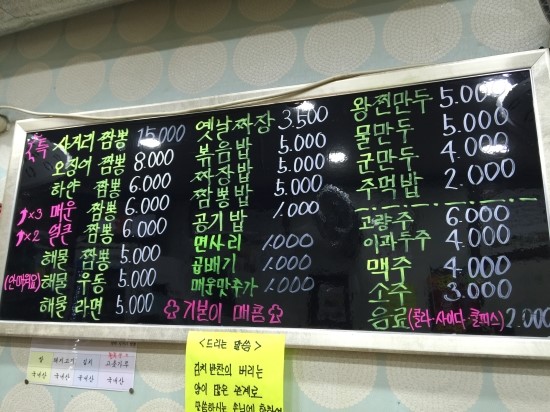 특 사거리 짬뽕 15.000
오징어 짬뽕 8.000
하얀 짬뽕 6.000
x3 매운 짬뽕 6.000
x2 얼큰 짬뽕 6.000
해물 짬뽕 5.000
(안매워요) 해물 우동 5.000
해물 라면 5.000
옛날짜장 3.500
볶음밥 5.000
짜장밥 5.000
짬뽕밥 5.000
공기밥 1.000
면사리 1.000
곱배기 1.000
매운맛추가 1.000
기본이 매콤
왕찐만두 5.000
물만두 5.000
군만두 4.000
주먹밥 2.000
고량주 6.000
이과두주 4.000
맥주 4.000
소주 3.000
음료(콜라·사이다·쿨피스) 2.000
쌀 돼지고기 김치 고춧가루
국내산 국내산 국내산 국내산
<드리는 말씀>
김치 반찬의 버리는
양이 많은 관계로
말씀하시는 손님에 한하여